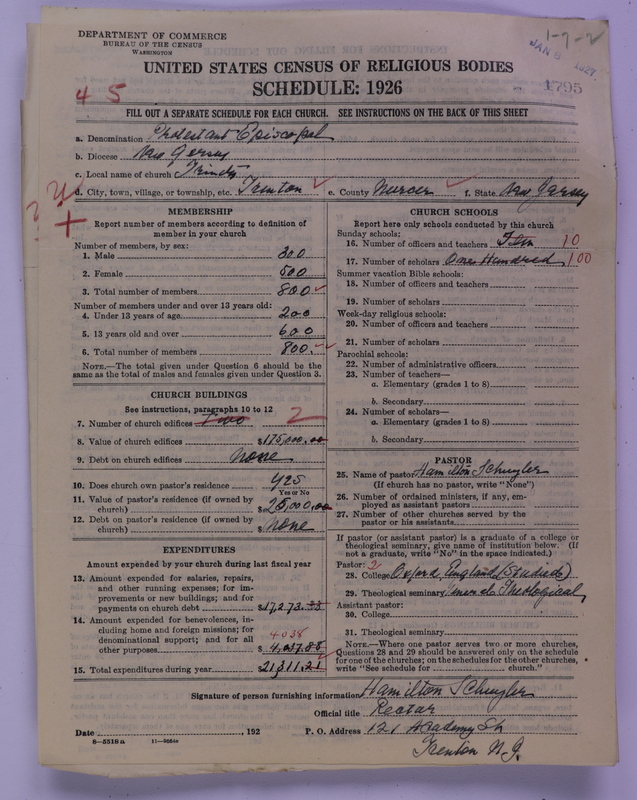 DEPARTMENT OF COMMERCE
BUREAU OF THE CENSUS
WASHINGTON
1-7-2
JAN 5 1927
1795
UNITED STATES CENSUS OF RELIGIOUS BODIES
SCHEDULE: 1926
4 5
FILL OUT A SEPARATE SCHEDULE FOR EACH CHURCH. SEE INSTRUCTIONS ON THE BACK OF THIS SHEET
a. Denomination Protestant Episcopal
b. Diocese New Jersey
c. Local name of church Trinity
d. City, town, village, or township, etc. Trenton e. County Mercer f. State New Jersey
MEMBERSHIP
Report number of members according to definition of
member in your church
Number of members, by sex:
1. Male 300
2. Female 500
3. Total number of members 800
Number of members under and over 13 years old:
4. Under 13 years of age 200
5. 13 years old and over 600
6. Total number of members 800
NOTE.—The total given under Question 6 should be the
same as the total of males and females given under Question 3.
CHURCH BUILDINGS
See instructions, paragraphs 10 to 12
7. Number of church edifices Two 2
8. Value of church edifices $175,000.00
9. Debt on church edifices none
10. Does church own pastor's residence? yes
Yes or No
11. Value of pastor's residence (if owned by
church) $25,000.00
12. Debt on pastor's residence (if owned by
church) $none
EXPENDITURES
Amount expended by your church during last fiscal year
13. Amount expended for salaries, repairs,
and other running expenses; for im-
provements or new buildings; and for
payments on church debt $17,273.33
14. Amount expended for benevolences, in-
cluding home and foreign missions; for
denominational support; and for all
other purposes 4038 $4,037.88
15. Total expenditures during year 21,311.21
CHURCH SCHOOLS
Report here only schools conducted by this church
Sunday schools:
16. Number of officers and teachers Ten 10
17. Number of scholars One Hundred 100
Summer vacation Bible schools:
18. Number of officers and teachers
19. Number of scholars
Week-day religious schools:
20. Number of officers and teachers
21. Number of scholars
Parochial schools:
22. Number of administrative officers
23. Number of teachers—
a. Elementary (grades 1 to 8)
b. Secondary
24. Number of scholars—
a. Elementary (grades 1 to 8)
b. Secondary
PASTOR
25. Name of pastor Hamilton Schuyler
(If church has no pastor, write "None")
26. Number of ordained ministers, if any, em-
ployed as assistant pastors
27. Number of other churches served by the
pastor or his assistants
If pastor (or assistant pastor) is a graduate of a college or
theological seminary, give name of institution below. (If
not a graduate, write "No" in the space indicated.)
Pastor:
28. College Oxford, England (Studied)
29. Theological seminary General Theological
Assistant pastor:
30. College
31. Theological seminary
NOTE.—Where one pastor serves two or more churches,
Questions 28 and 29 should be answered only on the schedule
for one of the churches; on the schedules for the other churches,
write "See schedule for church."
Signature of person furnishing information Hamilton Schuyler
Official title Rector
Date , 192 P. O. Address 121 Academy St
Trenton N.J.
8—5518a 11—9664